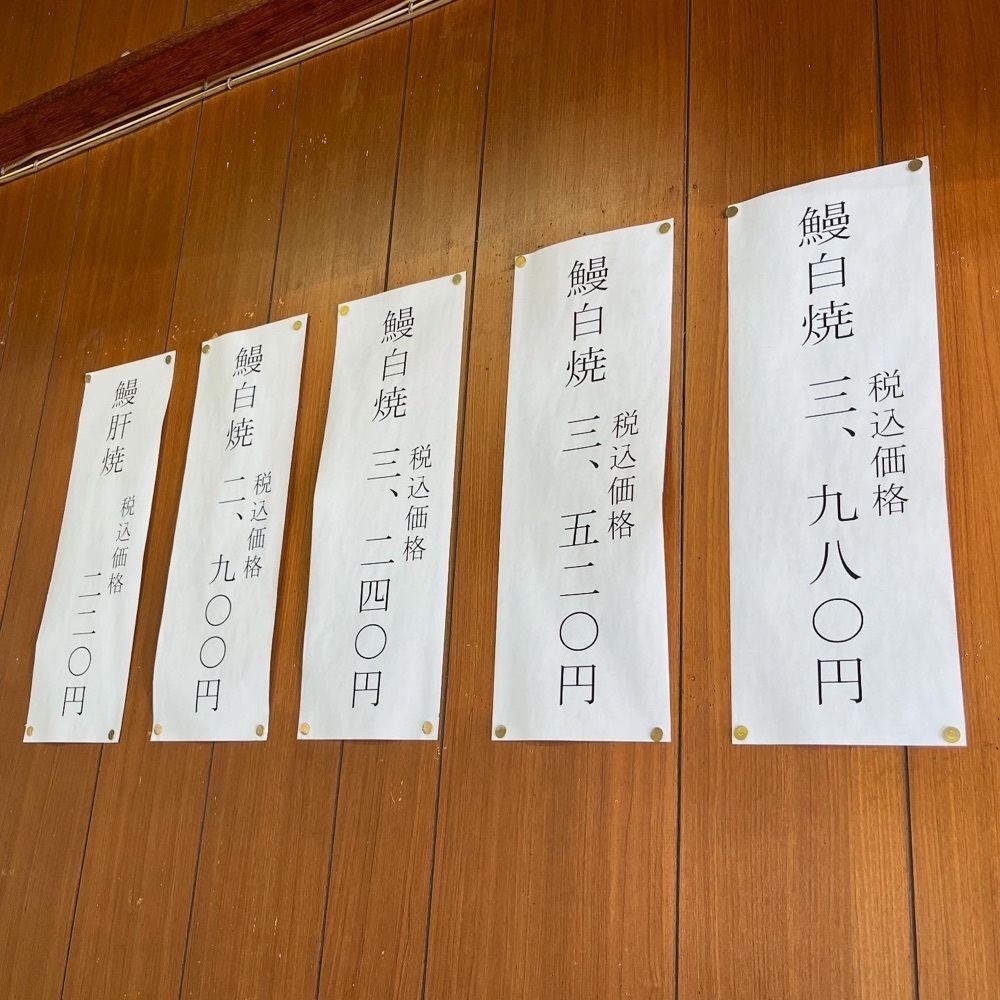 鰻白焼
税込価格
三、九八〇円
鰻白焼
税込価格
三、五二〇円
鰻白焼
税込価格
三、二四〇円
鰻白焼
税込価格
二、九〇〇円
鰻肝焼
税込価格
二二〇円